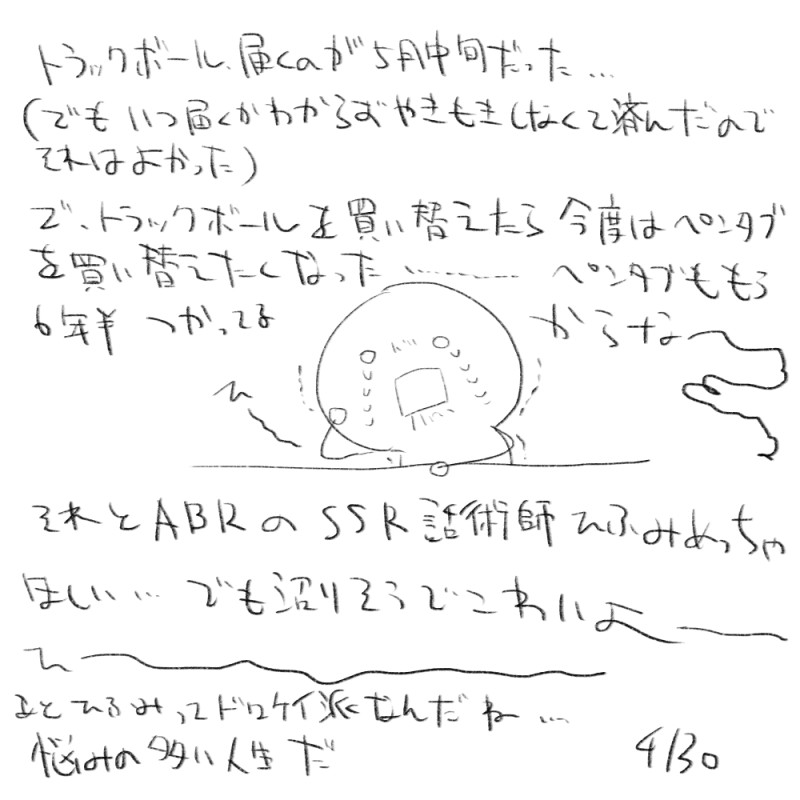 トラックボール、届くのが5月中旬だった…
(でもいつ届くかわからずやきもきしなくて済んだので
それはよかった)
で、トラックボールを買い替えたら今度はペンタブ
を買い替えたくなった………… ペンタブももう
6年半 つかってる からなー
ひー
それとABRのSSR話術師ひふみめっちゃ
ほしい… でも沼りそうでこわいよー
ひー
あとひふみってドロケイ派なんだね…
悩みの多い人生だ 4/30